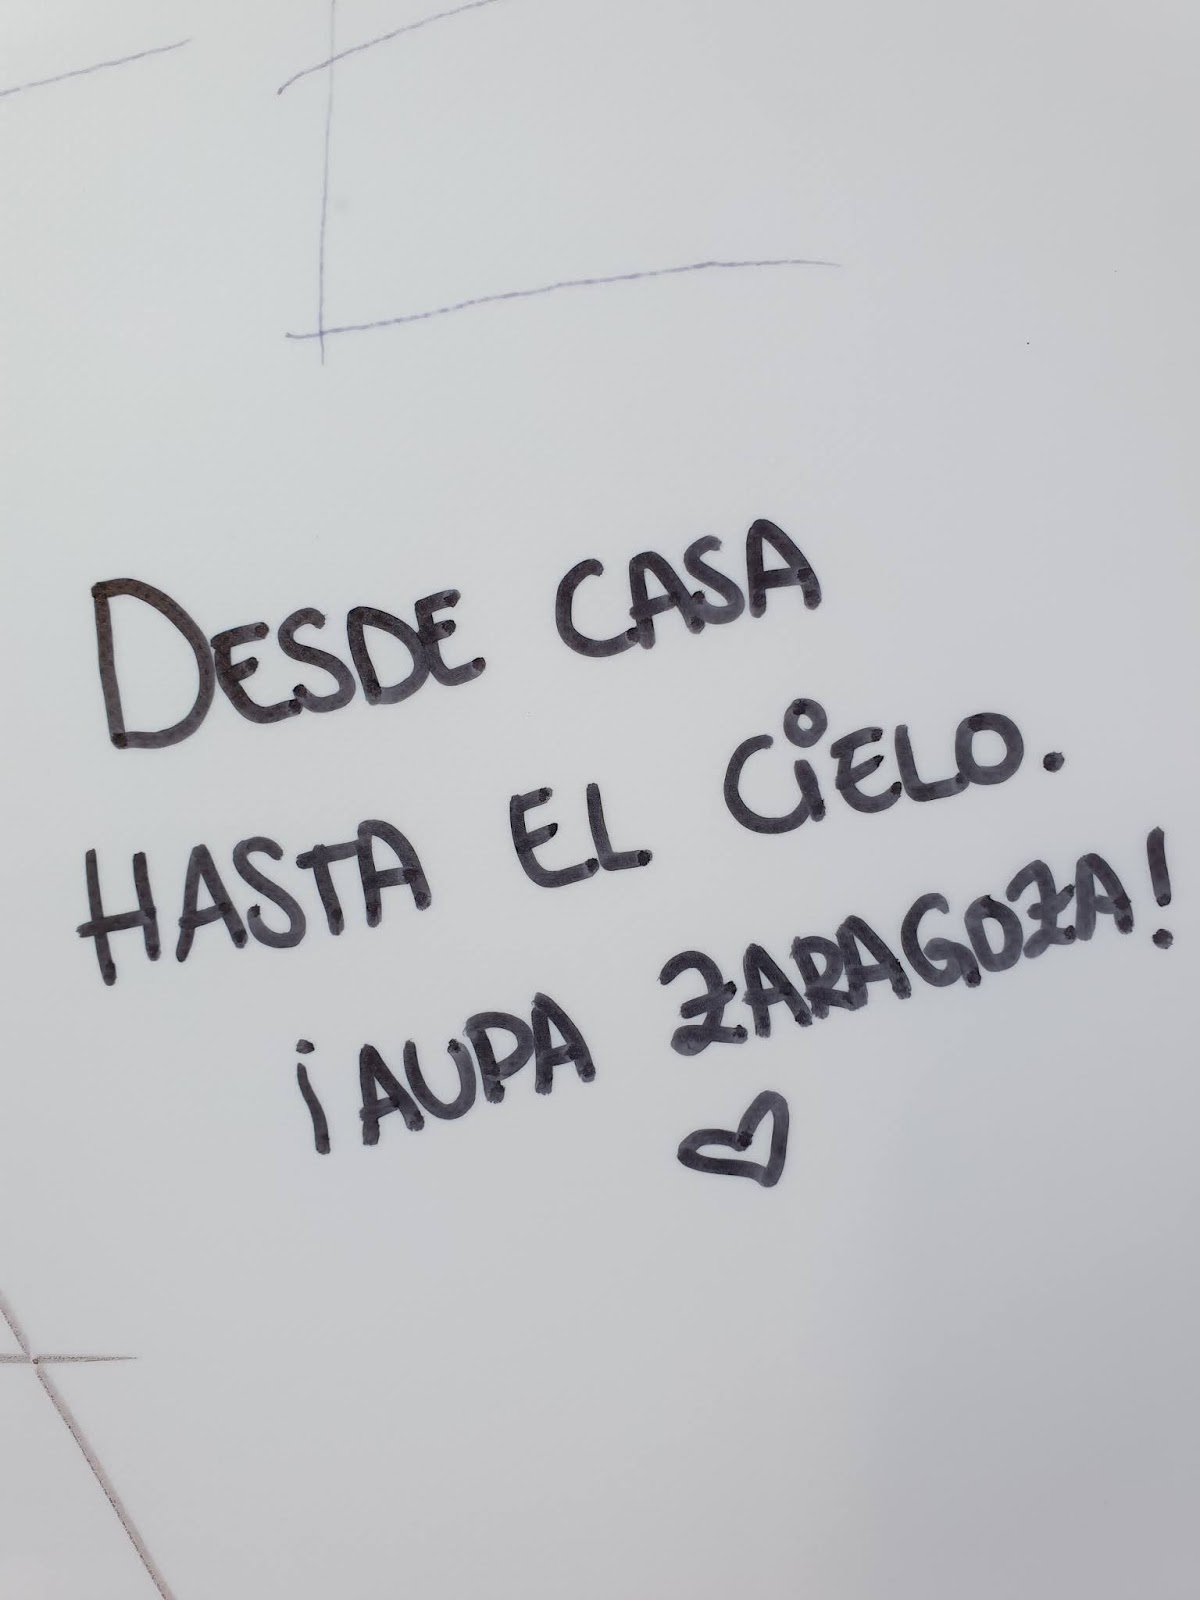 DESDE CASA
HASTA EL CiELO.
¡AUPA ZARAGOZA!